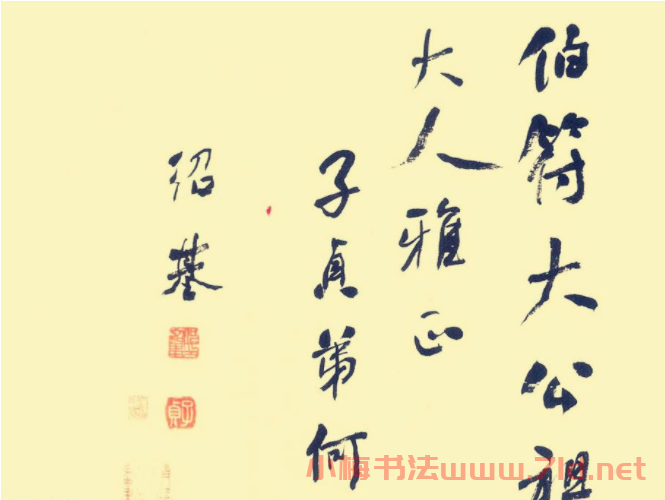 伯符大公祖
大人雅正
子貞弟何
绍基
子貞
小梅书法www.7ld.net